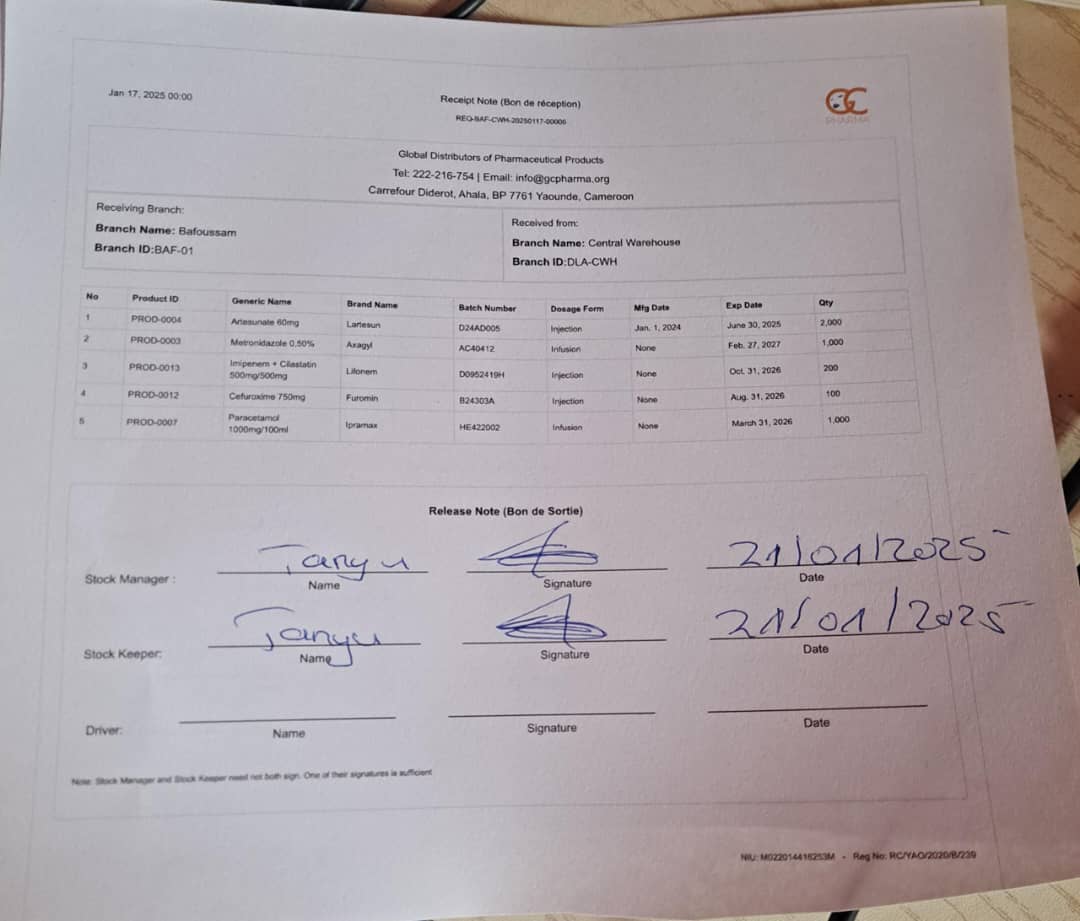 Jan 17, 2025 00:00
Receipt Note (Bon de réception)
REQ-BAF-CWH-20250117-00006
GC
PHARMA
Global Distributors of Pharmaceutical Products
Tel: 222-216-754 | Email: info@gcpharma.org
Carrefour Diderot, Ahala, BP 7761 Yaounde, Cameroon
Receiving Branch:
Branch Name: Bafoussam
Branch ID:BAF-01
Received from:
Branch Name: Central Warehouse
Branch ID:DLA-CWH
No Product ID Generic Name Brand Name Batch Number Dosage Form Mfg Date Exp Date Qty
1 PROD-0004 Artesunate 60mg Lartesun D24AD005 Injection Jan. 1, 2024 June 30, 2025 2,000
2 PROD-0003 Metronidazole 0,50% Axagyl AC40412 Infusion None Feb. 27, 2027 1,000
3 PROD-0013 Imipenem + Cilastatin 500mg/500mg Lilonem D0952419H Injection None Oct. 31, 2026 200
4 PROD-0012 Cefuroxime 750mg Furomin B24303A Injection None Aug. 31, 2026 100
5 PROD-0007 Paracetamol 1000mg/100ml Ipramax HE422002 Infusion None March 31, 2026 1,000
Release Note (Bon de Sortie)
Stock Manager : Tanyu 21/01/2025
Name Signature Date
Stock Keeper: Tanyu 21/01/2025
Name Signature Date
Driver:
Name Signature Date
Note: Stock Manager and Stock Keeper need not both sign. One of their signatures is sufficient
NIU: M022014416253M - Reg No: RC/YAO/2020/B/239